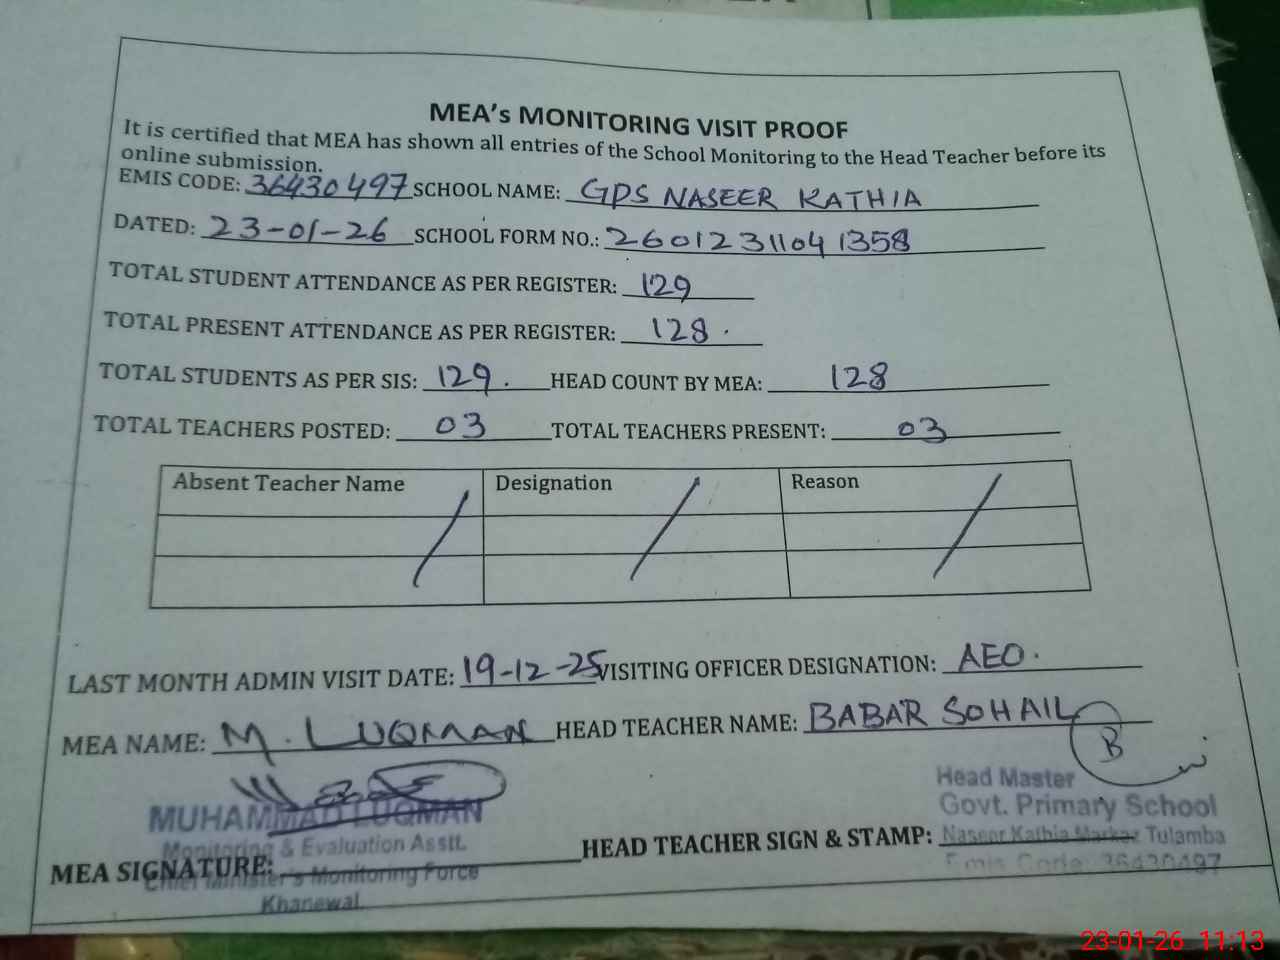 MEA's MONITORING VISIT PROOF
It is certified that MEA has shown all entries of the School Monitoring to the Head Teacher before its
online submission.
EMIS CODE: 36430497 SCHOOL NAME: GPS NASEER KATHIA
DATED: 23-01-26 SCHOOL FORM NO.: 2601231104 1358
TOTAL STUDENT ATTENDANCE AS PER REGISTER: 129
TOTAL PRESENT ATTENDANCE AS PER REGISTER: 128.
TOTAL STUDENTS AS PER SIS: 129. HEAD COUNT BY MEA: 128
TOTAL TEACHERS POSTED: 03 TOTAL TEACHERS PRESENT: 03
Absent Teacher Name Designation Reason
LAST MONTH ADMIN VISIT DATE: 19-12-25 VISITING OFFICER DESIGNATION: AEO.
MEA NAME: M. LUQMAN HEAD TEACHER NAME: BABAR SOHAIL
B
MUHAMMAD LUQMAN
Monitoring & Evaluation Asstt.
Chief Minister's Monitoring Force
Khanewal
MEA SIGNATURE:
HEAD TEACHER SIGN & STAMP:
Head Master
Govt. Primary School
Naseer Kathia Markaz Tulamba
Emis Code: 36430497
23-01-26 11:13